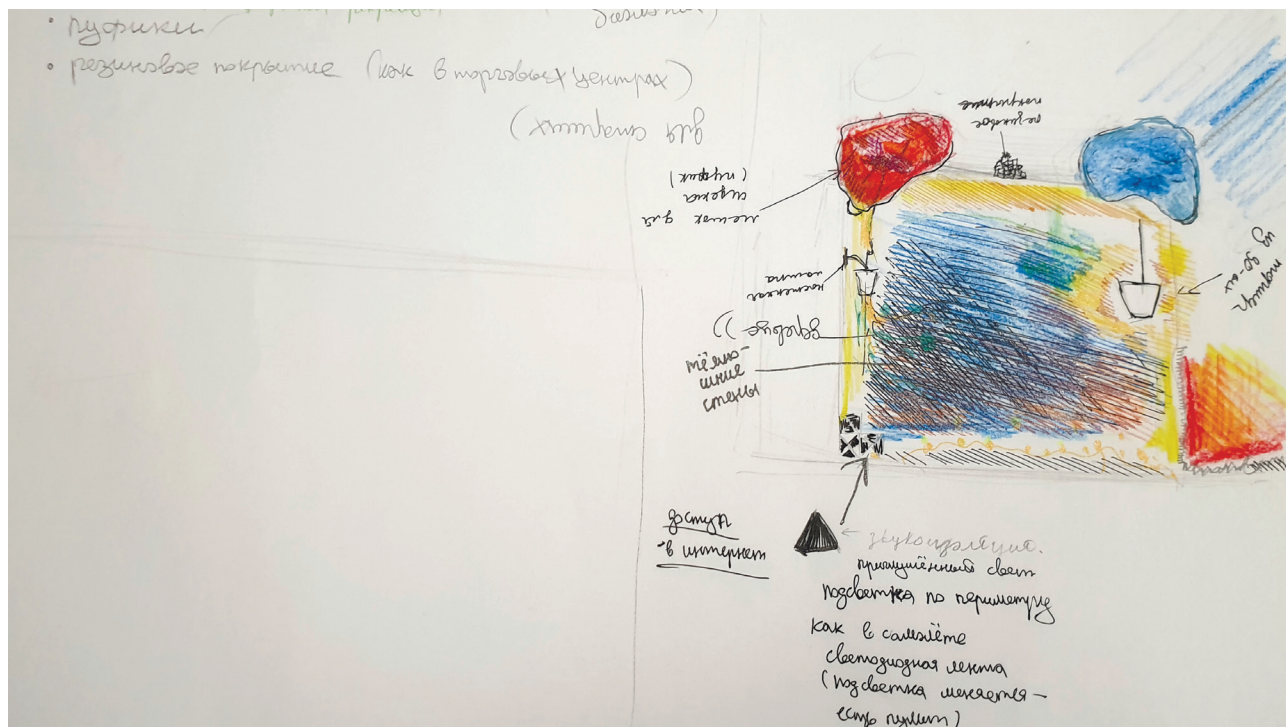 • пуфики
• резиновое покрытие (как в торговых центрах)
резиновое
покрытие
мешок для
сидения
(пуфик)
настенная
лампа
тёмно-
синие
стены
доступ
в интернет
звукоизоляция.
приглушённый свет
подсветка по периметру
как в самолёте
светодиодная лента
(подсветка меняется —
есть пульт)